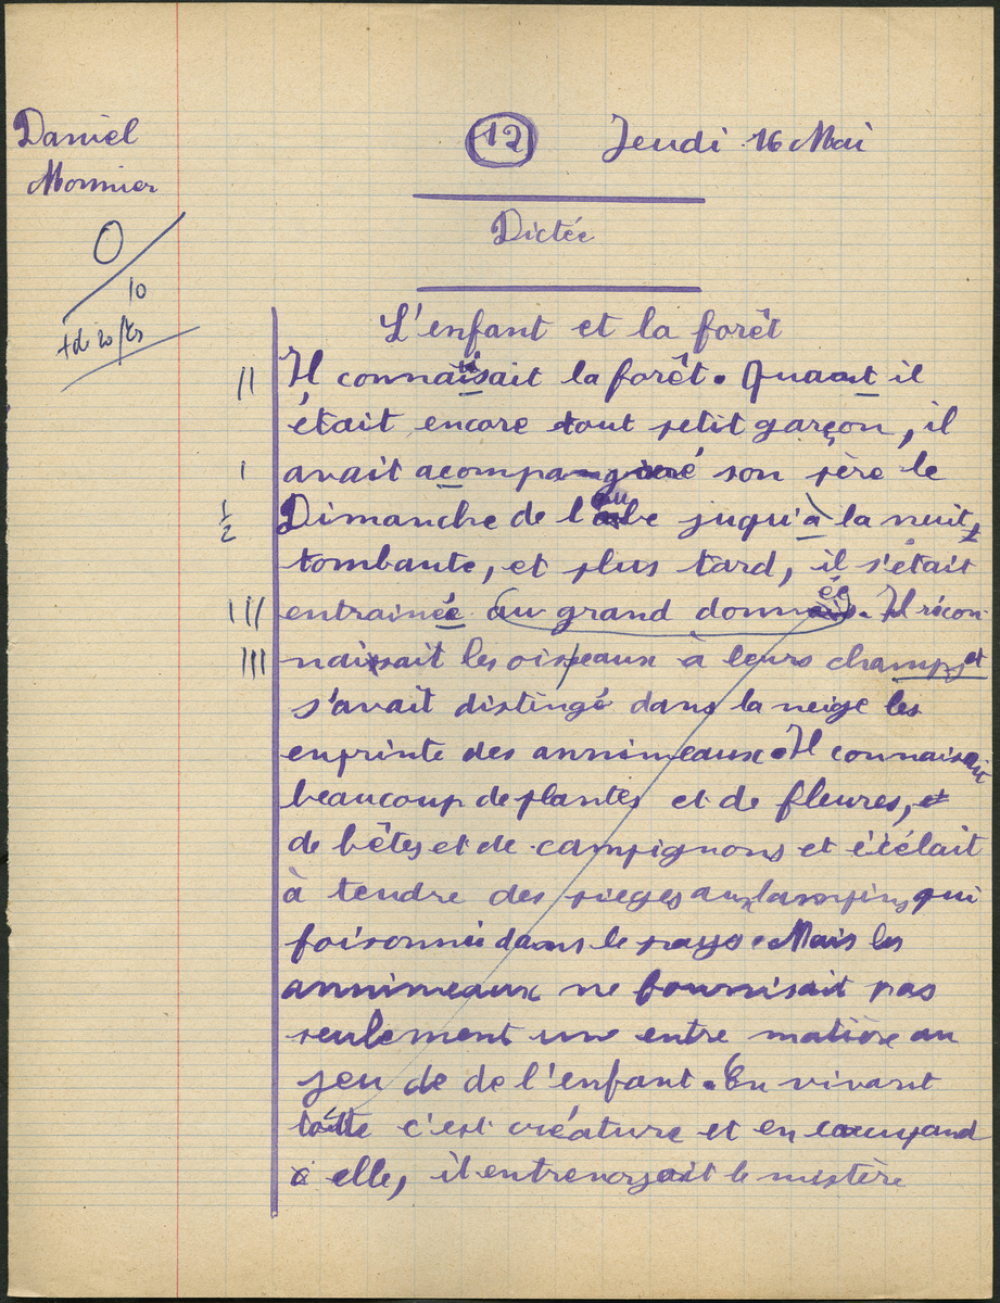 Daniel
Monnier
12 Jeudi 16 Mai
Dictée
0
10
+ de 20 ftes
L'enfant et la forêt
Il connaissait la forêt. Quant il
était encore tout petit garçon, il
avait acompagné son père le
Dimanche de l'aube juqu'à la nuit
tombante, et plus tard, il s'était
entrainée au grand donnée. Il récon-
naissait les oiseaux à leurs champs et
s'avait distingé dans la neige les
enprinte des annimeaux. Il connaisait
beaucoup de plantes et de fleures,
de bêtes et de campignons et éxélait
à tendre des pieges aux lampins qui
foisonnie dans le pays. Mais les
annimeaux ne fournisait pas
seulement une entre matière au
jeu de de l'enfant. En vivant
c'est créature et en
à elle, il entrenorsait le mistère